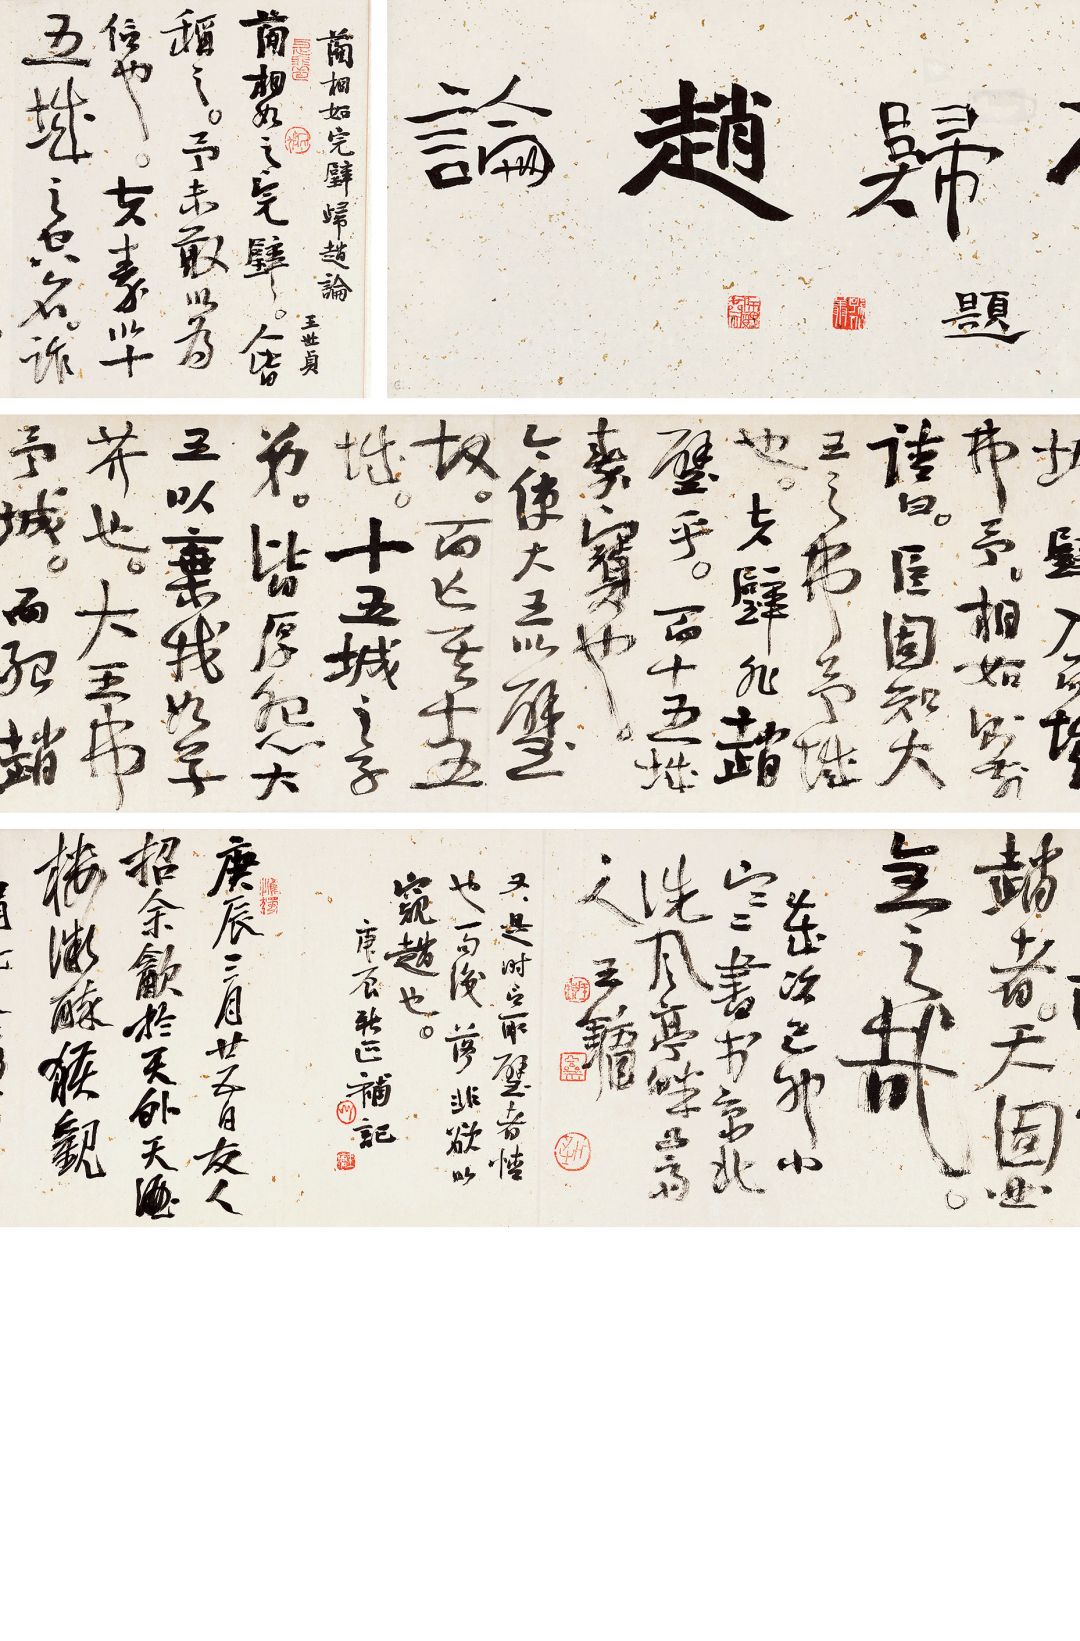 歸
趙
論
題
藺相如完璧歸趙論
王世貞
藺相如之完璧。人皆
稱之。予未敢以為
信也。夫秦以十
五城之空名。詐
城 璧入而城
弗予。相如則前
請曰。臣固知大
王之弗予城
也。夫璧非趙
璧乎。而十五城
秦寶也。
今使大王以璧
故。而亡其十五
城。十五城之子
弟。皆厚怨大
王以棄我如草
芥也。大王弗
予城。而紿趙
趙者。天固曲
全之哉。
歲次己卯小
寒二書於京北
洗風亭畔
之 王鏞
又是时言取璧者情
也一句後落非欲以
窺趙也。
庚辰秋 補記
庚辰三月廿五日友人
招余飲於天外天酒
樓微醉候觀